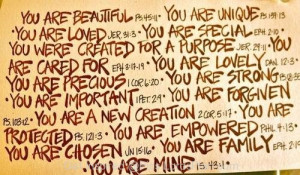 YOU ARE BEAUTIFUL PS. 45:11 · YOU ARE UNIQUE PS. 139:13
· YOU ARE LOVED JER. 31:3 · YOU ARE SPECIAL EPH. 2:10
YOU WERE CREATED FOR A PURPOSE JER. 29:11 · YOU
ARE CARED FOR EPH. 3:17-19 · YOU ARE LOVELY DAN. 12:3 ·
YOU ARE PRECIOUS 1 COR 6:20 · YOU ARE STRONG
· YOU ARE IMPORTANT 1 PET. 2:9 · YOU ARE FORGIVEN
PS. 103:12 · YOU ARE A NEW CREATION 2 COR. 5:17 · YOU ARE
PROTECTED PS. 121:3 · YOU ARE EMPOWERED PHIL. 4:13 ·
YOU ARE CHOSEN JN 15:16 · YOU ARE FAMILY EPH. 2:19
· YOU ARE MINE IS. 43:1 ·